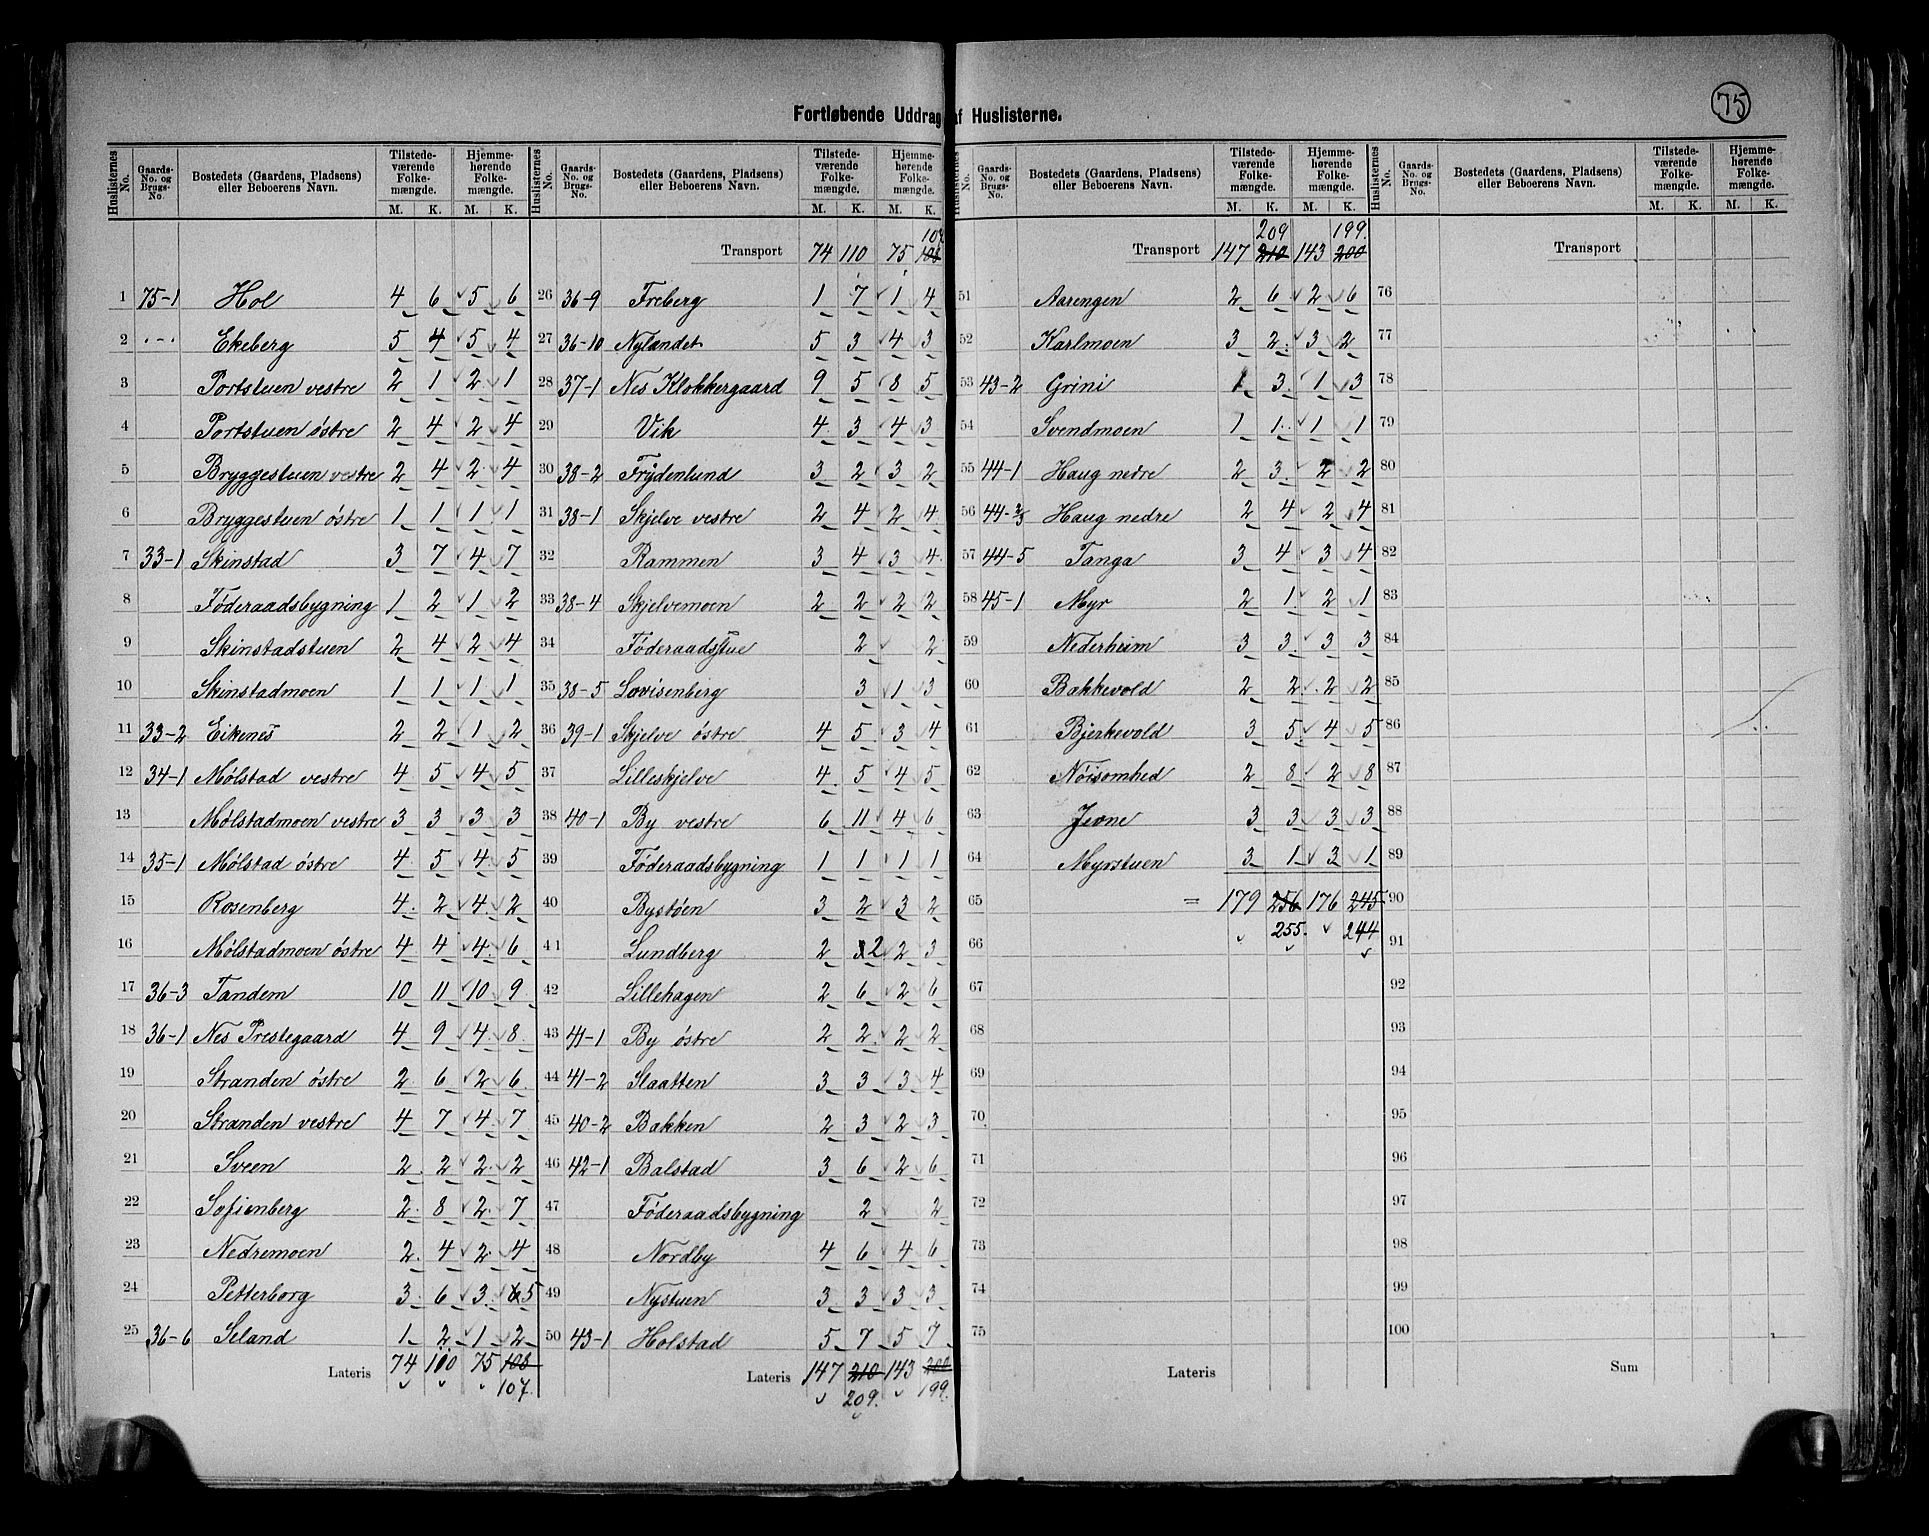 75
Fortløbende Uddrag af Huslisterne.
Huslisternes No. Gaards-No. og Brugs-No. Bostedets (Gaardens, Pladsens) eller Beboerens Navn. Tilstedeværende Folkemængde. M. K. Hjemmehørende Folkemængde. M. K.
1 75-1 Hol 4 6 5 6
2 -"- Ekeberg 5 4 5 4
3 Portstuen vestre 2 1 2 1
4 Portstuen østre 2 4 2 4
5 Bryggestuen vestre 2 4 2 4
6 Bryggestuen østre 1 1 1 1
7 33-1 Skinstad 3 7 4 7
8 Føderaadsbygning 1 2 1 2
9 Skinstadstuen 2 4 2 4
10 Skinstadmoen 1 1 1 1
11 33-2 Eikenes 2 2 1 2
12 34-1 Mølstad vestre 4 5 4 5
13 Mølstadmoen vestre 3 3 3 3
14 35-1 Mølstad østre 4 5 4 5
15 Rosenberg 4 2 4 2
16 Mølstadmoen østre 4 4 4 6
17 36-3 Tandem 10 11 10 9
18 36-1 Nes Prestegaard 4 9 4 8
19 Stranden østre 2 6 2 6
20 Stranden vestre 4 7 4 7
21 Sveen 2 2 2 2
22 Sofienberg 2 8 2 7
23 Nedremoen 2 4 2 4
24 Petterborg 3 6 3 6 5
25 36-6 Seland 1 2 1 2
Lateris 74 110 75 108
107.
Huslisternes No. Gaards-No. og Brugs-No. Bostedets (Gaardens, Pladsens) eller Beboerens Navn. Tilstedeværende Folkemængde. M. K. Hjemmehørende Folkemængde. M. K.
107
Transport 74 110 75 108
26 36-9 Freberg 1 7 1 4
27 36-10 Nylandet 5 3 4 3
28 37-1 Nes Klokkergaard 9 5 8 5
29 Vik 4 3 4 3
30 38-2 Frydenlund 3 2 3 2
31 38-1 Skjelve vestre 2 4 2 4
32 Rammen 3 4 3 4
33 38-4 Skjelvemoen 2 2 2 2
34 Føderaadstue 2 2
35 38-5 Lovisenberg 3 1 3
36 39-1 Skjelve østre 4 5 3 4
37 Lilleskjelve 4 5 4 5
38 40-1 By vestre 6 11 4 6
39 Føderaadsbygning 1 1 1 1
40 Bystøen 3 2 3 2
41 Lundberg 2 3 2 2 3
42 Lillehagen 2 6 2 6
43 41-1 By østre 2 2 2 2
44 41-2 Slaatten 3 3 3 4
45 40-2 Bakken 2 3 2 3
46 42-1 Balstad 3 6 2 6
47 Føderaadsbygning 2 2
48 Nordby 4 6 4 6
49 Nystuen 3 3 3 3
50 43-1 Holstad 5 7 5 7
Lateris 147 210 143 200
209. 199.
Huslisternes No. Gaards-No. og Brugs-No. Bostedets (Gaardens, Pladsens) eller Beboerens Navn. Tilstedeværende Folkemængde. M. K. Hjemmehørende Folkemængde. M. K.
209 199.
Transport 147 210 143 200
51 Aarengen 2 6 2 6
52 Karlmoen 3 2 3 2
53 43-2 Grini 1 3 1 3
54 Svendmoen 1 1 1 1
55 44-1 Haug nedre 2 3 2 2
56 44-2/3 Haug nedre 2 4 2 4
57 44-5 Tanga 3 4 3 4
58 45-1 Myr 2 1 2 1
59 Nederheim 3 3 3 3
60 Bakkevold 2 2 2 2
61 Bjerkevold 3 5 4 5
62 Nøisomhed 2 8 2 8
63 Jevne 3 3 3 3
64 Myrstuen 3 1 3 1
65 = 179 256 176 245
66 255. 244
67
68
69
70
71
72
73
74
75
Lateris
Huslisternes No. Gaards-No. og Brugs-No. Bostedets (Gaardens, Pladsens) eller Beboerens Navn. Tilstedeværende Folkemængde. M. K. Hjemmehørende Folkemængde. M. K.
Transport
76
77
78
79
80
81
82
83
84
85
86
87
88
89
90
91
92
93
94
95
96
97
98
99
100
Sum